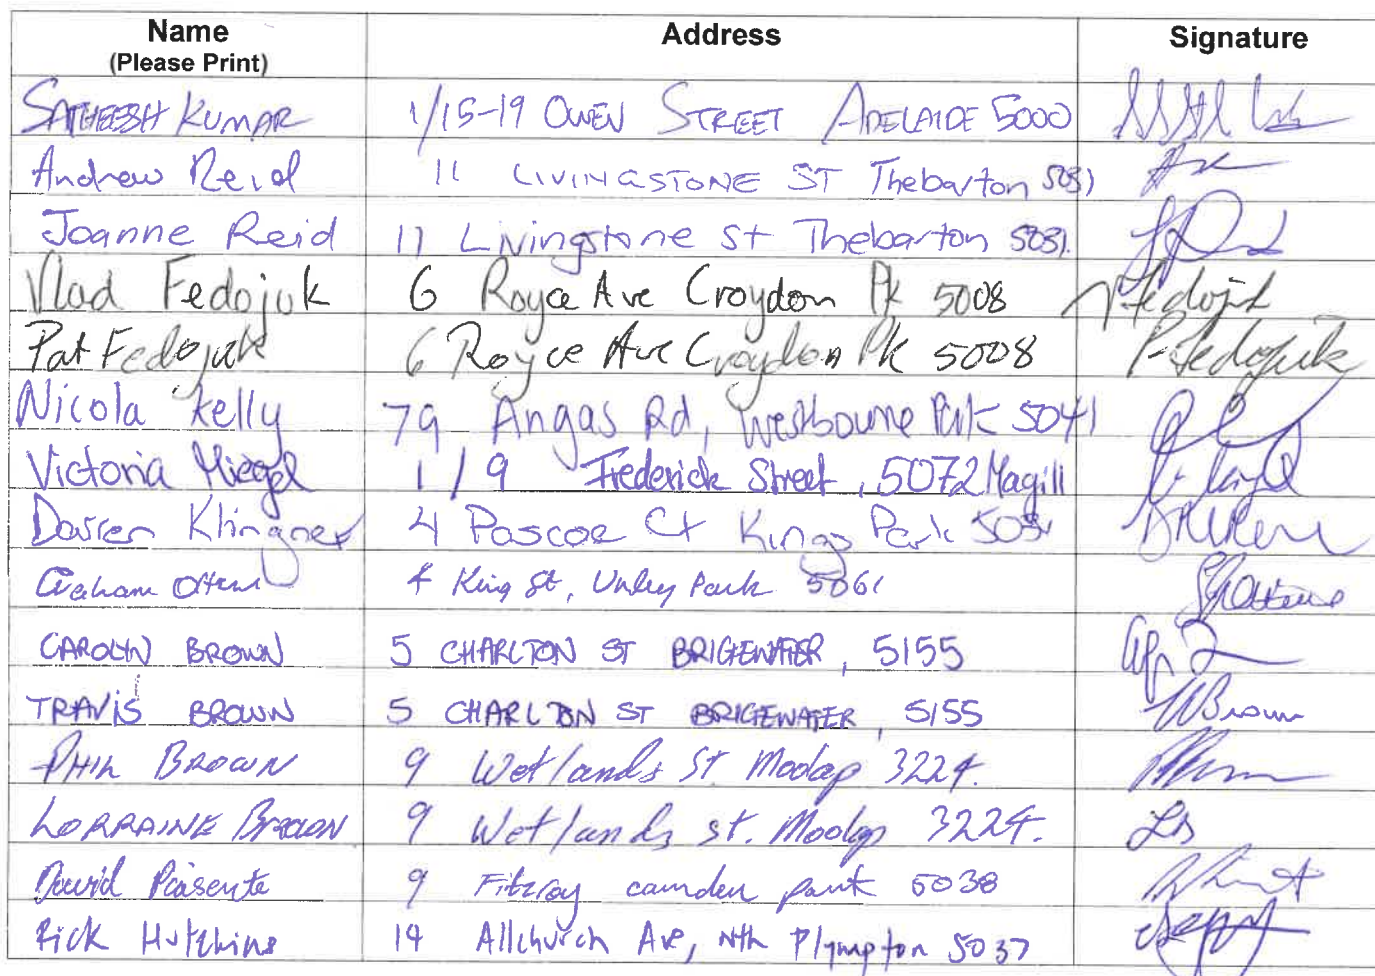 Name Address Signature
(Please Print)
SATHEESH KUMAR 1/15-19 OWEN STREET ADELAIDE 5000
Andrew Reid 11 LIVINGSTONE ST Thebarton 5031
Joanne Reid 11 Livingstone St Thebarton 5031.
Vlad Fedojuk 6 Royce Ave Croydon Pk 5008 V Fedojuk
Pat Fedojuk 6 Royce Ave Croydon Pk 5008 P. Fedojuk
Nicola Kelly 79 Angas Rd, Westbourne Park 5041
Victoria Miegel 1/9 Frederick Street, 5072 Magill
Darren Klingner 4 Pascoe Ct Kings Park 5034
Graham 4 King St, Unley Park 5061
CAROLYN BROWN 5 CHARLTON ST BRIGEWATER, 5155
TRAVIS BROWN 5 CHARLTON ST BRIGEWATER, 5155 TBrown
PHIL BROWN 9 Wetlands St. Moolap 3224.
LORRAINE BROWN 9 Wetlands st. Moolap 3224. LB
David Paisente 9 Fitzroy camden park 5038
Rick Hutchins 14 Allchurch Ave, Nth Plympton 5037